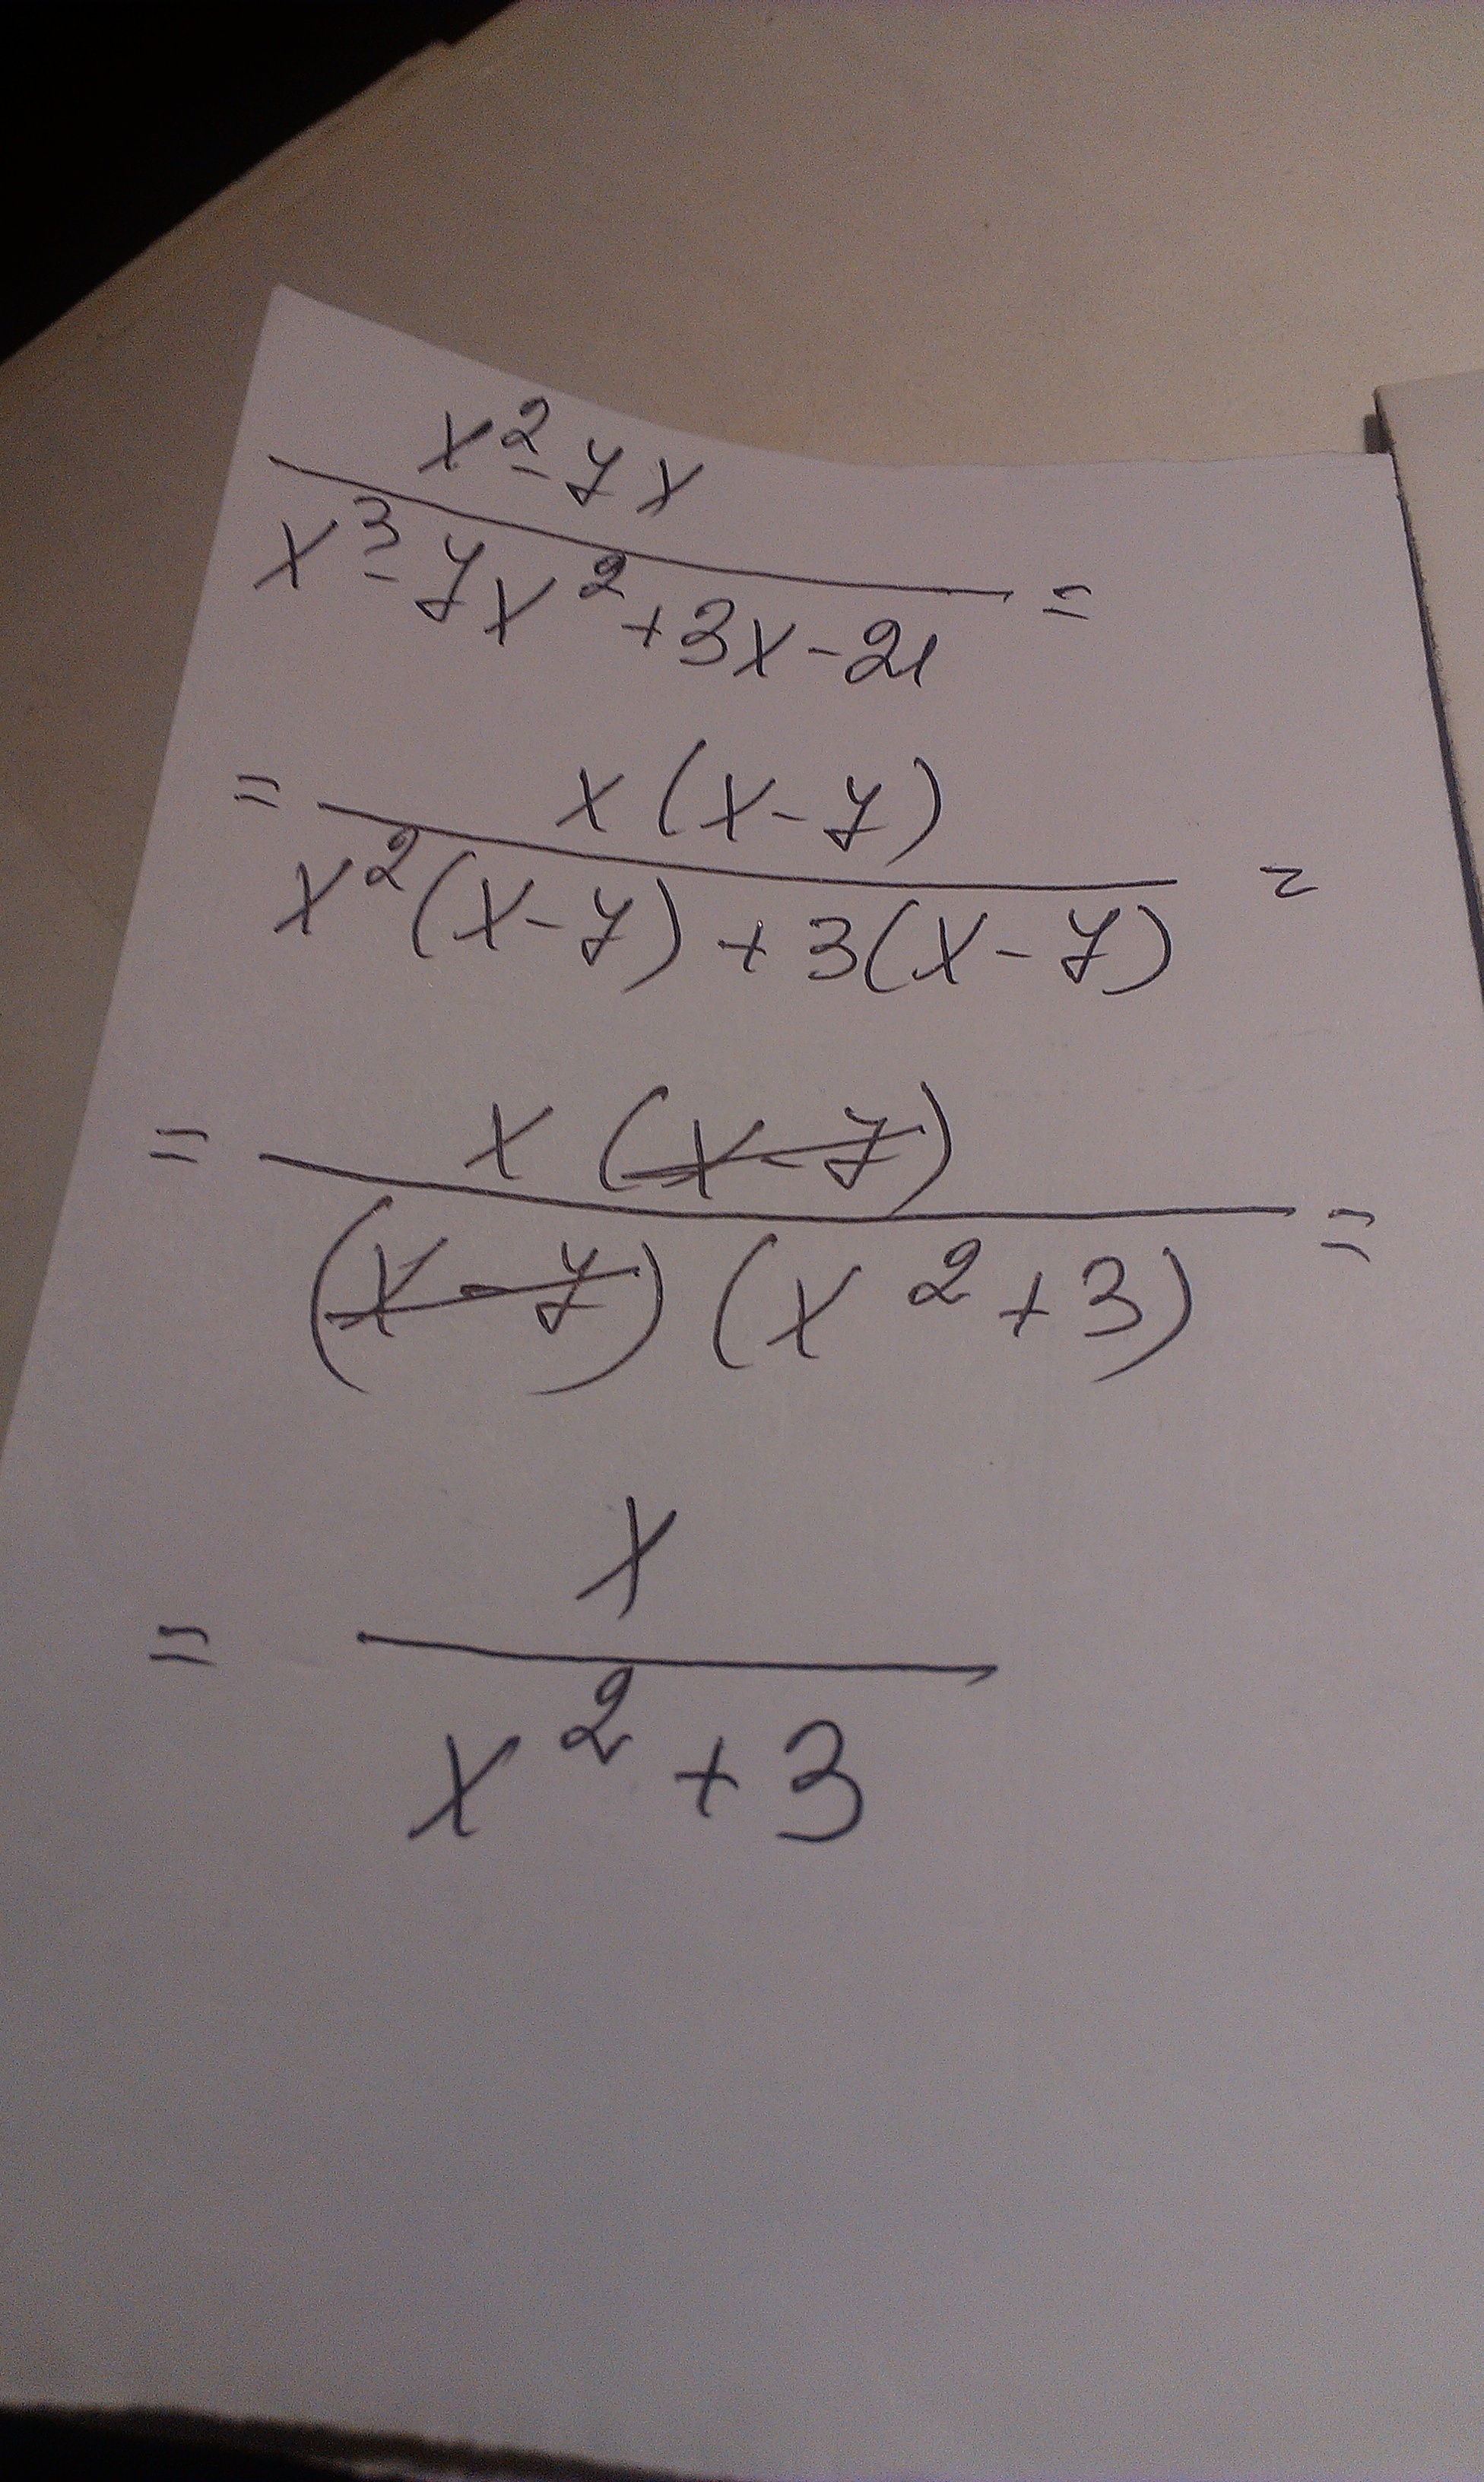 x²-7x
x³-7x²+3x-21 =
= x(x-7)
x²(x-7)+3(x-7) =
= x(x-7)
(x-7)(x²+3) =
= x
x²+3